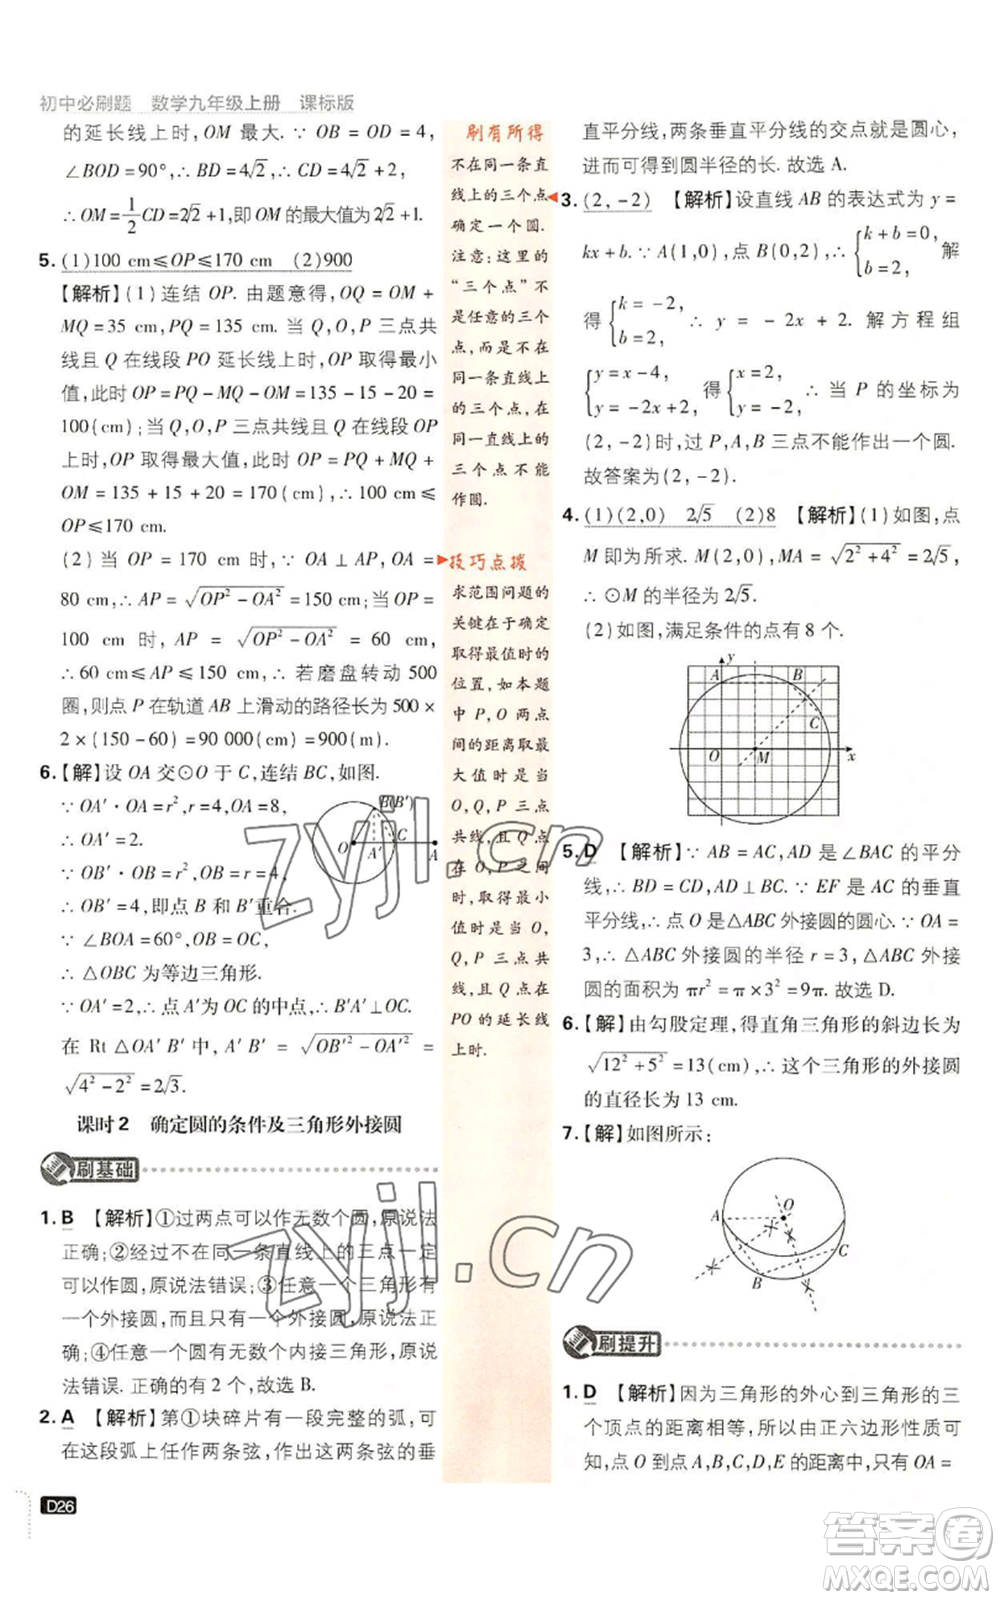 初中必刷题 数学九年级上册 课标版
的延长线上时,OM 最大.∵ OB = OD = 4,
∠BOD=90°,∴ BD=4√2,
∴ OM=1/2CD=2√2+1,即 OM 的最大值为 2√2+1.
5. (1)100 cm≤OP≤170 cm (2)900
【解析】(1)连结 OP. 由题意得,OQ = OM +
MQ=35 cm,PQ=135 cm. 当 Q,O,P 三点共
线且 Q 在线段 PO 延长线上时,OP 取得最小
值,此时 OP=PQ-MQ-OM=135-15-20=
100(cm);当 Q,O,P 三点共线且 Q 在线段 OP
上时,OP 取得最大值,此时 OP = PQ + MQ +
OM = 135 + 15 + 20 = 170 (cm),∴ 100 cm ≤
OP≤170 cm.
(2)当 OP = 170 cm 时,∵ OA ⊥ AP,OA =
80 cm,∴ AP= √(OP²-OA²) =150 cm;当 OP=
100 cm 时,AP = √(OP²-OA²) = 60 cm,
∴ 60 cm ≤ AP ≤ 150 cm,∴ 若磨盘转动 500
圈,则点 P 在轨道 AB 上滑动的路径长为 500 ×
2×(150-60)=90 000(cm)=900(m).
6.【解】设 OA 交⊙O 于 C,连结 BC,如图.
∵ OA′·OA=r²,r=4,OA=8,
∴ OA′=2.
∵ OB′·OB=r²,OB=r=4,
∴ OB′=4,即点 B 和 B′重合.
∵ ∠BOA=60°,OB=OC,
∴ △OBC 为等边三角形.
∵ OA′=2,∴ 点 A′为 OC 的中点,∴ B′A′⊥OC.
在 Rt △OA′B′中,由勾股定理得 A′B′ = √(OB′²-OA′²) =
√(4²-2²)=2√3.
B(B′)
O A′ C A
课时2 确定圆的条件及三角形外接圆
刷基础
1. B 【解析】①过两点可以作无数个圆,原说法
正确;②经过不在同一条直线上的三点一定
可以作圆,原说法错误;③任意一个三角形有
一个外接圆,并且只有一个外接圆,原说法正
确;④任意一个圆有无数个内接三角形,原说
法错误. 正确的有 2 个,故选 B.
2. A 【解析】第①块碎片有一段完整的弧,可
在这段弧上任作两条弦,作出这两条弦的垂
D26
刷有所得
不在同一条直
线上的三个点
确定一个圆.
注意:这里的
“三个点”不
是任意的三个
点,而是不在
同一条直线上
的三个点,在
同一直线上的
三个点不能
作圆.
技巧点拨
求范围问题的
关键在于确定
取得最值时的
位置,如本题
中 P,O 两点
间的距离取最
大值时是当
O,Q,P 三点
共线,且 Q 点
在 O,P 之间
时,取得最小
值时是当 O,
Q,P 三点共
线,且 Q 点在
PO 的延长线
上时.
直平分线,两条垂直平分线的交点就是圆心,
进而可得到圆半径的长. 故选 A.
3. (2,-2) 【解析】设直线 AB 的表达式为 y=
kx+b.∵ A(1,0),点 B(0,2),∴ {k+b=0, b=2, 解
得{k=-2, b=2, ∴ y = - 2x + 2. 解方程组
{y=x-4, y=-2x+2, 得{x=2, y=-2, ∴ 当 P 的坐标为
(2,-2)时,过 P,A,B 三点不能作出一个圆.
故答案为(2,-2).
4. (1)(2,0) 2√5 (2)8 【解析】(1)如图,点
M 即为所求. M(2,0),MA= √(2²+4²)=2√5,
∴ ⊙M 的半径为 2√5.
(2)如图,满足条件的点有 8 个.
y
A B
C
O M x
5. D 【解析】∵ AB = AC,AD 是 ∠BAC 的平分
线,∴ BD = CD,AD ⊥ BC. ∵ EF 是 AC 的垂直
平分线,∴ 点 O 是△ABC 外接圆的圆心.∵ OA=
3,∴ △ABC 外接圆的半径 r = 3,∴ △ABC 外接
圆的面积为 πr²=π×3²=9π. 故选 D.
6.【解】由勾股定理,得直角三角形的斜边长为
√(12²+5²)=13(cm),∴ 这个三角形的外接圆
的直径长为 13 cm.
7.【解】如图所示:
A O
C
B
刷提升
1. D 【解析】因为三角形的外心到三角形的三
个顶点的距离相等,所以由正六边形性质可
知,点 O 到 A,B,C,D,E 的距离中,只有 OA=
zyjl.cn
zyjl.cn
答案圈
MXQE.COM